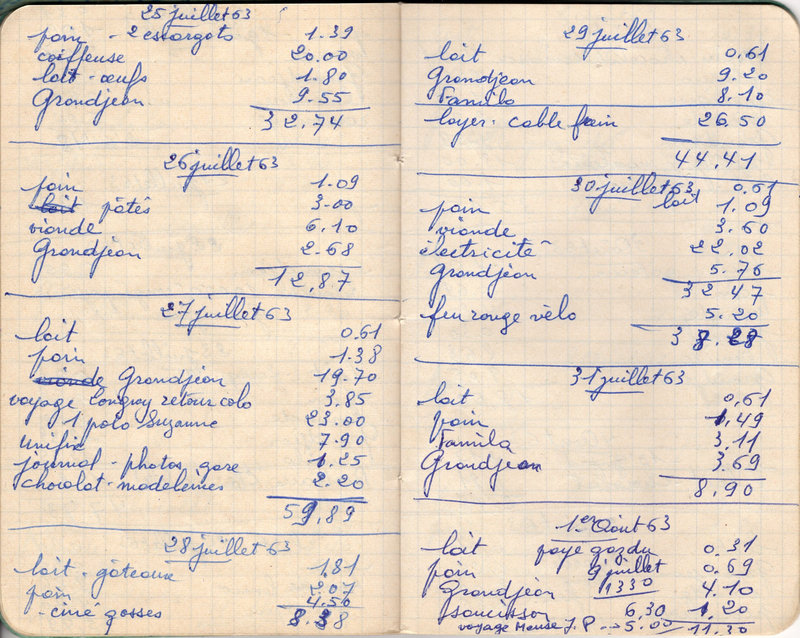 25 juillet 63
pain - 2 escargots 1.39
coiffeuse 20.00
lait - œufs 1.80
Grandjean 9.55
32.74
26 juillet 63
pain 1.09
lait pâtés 3.00
viande 6.10
Grandjean 2.68
12,87
27 juillet 63
lait 0.61
pain 1.38
viande Grandjean 19.70
voyage Longwy retour colo 3.85
1 polo Suzanne 23.00
unifix 7.90
journal - photos gare 1.25
chocolat - madeleines 2.20
59,89
28 juillet 63
lait - gâteaux 1.81
pain 2.07
- ciné gosses 4.50
8.38
29 juillet 63
lait 0.61
Grandjean 9.20
Familo 8.10
loyer: cable frein 26.50
44,41
30 juillet 63
lait 0.61
pain 1.09
viande 3.60
électricité 22.02
Grandjean 5.76
32 47
feu rouge vélo 5.20
31 juillet 63
lait 0,61
pain 1,49
Famila 3,11
Grandjean 3,69
8,90
1er Août 63
lait payé gaz du 0.31
pain 9 juillet 0.69
Grandjean 1330 4.10
saucisson 6,30 1,20
voyage Meuse J.P → 5.00 11,30